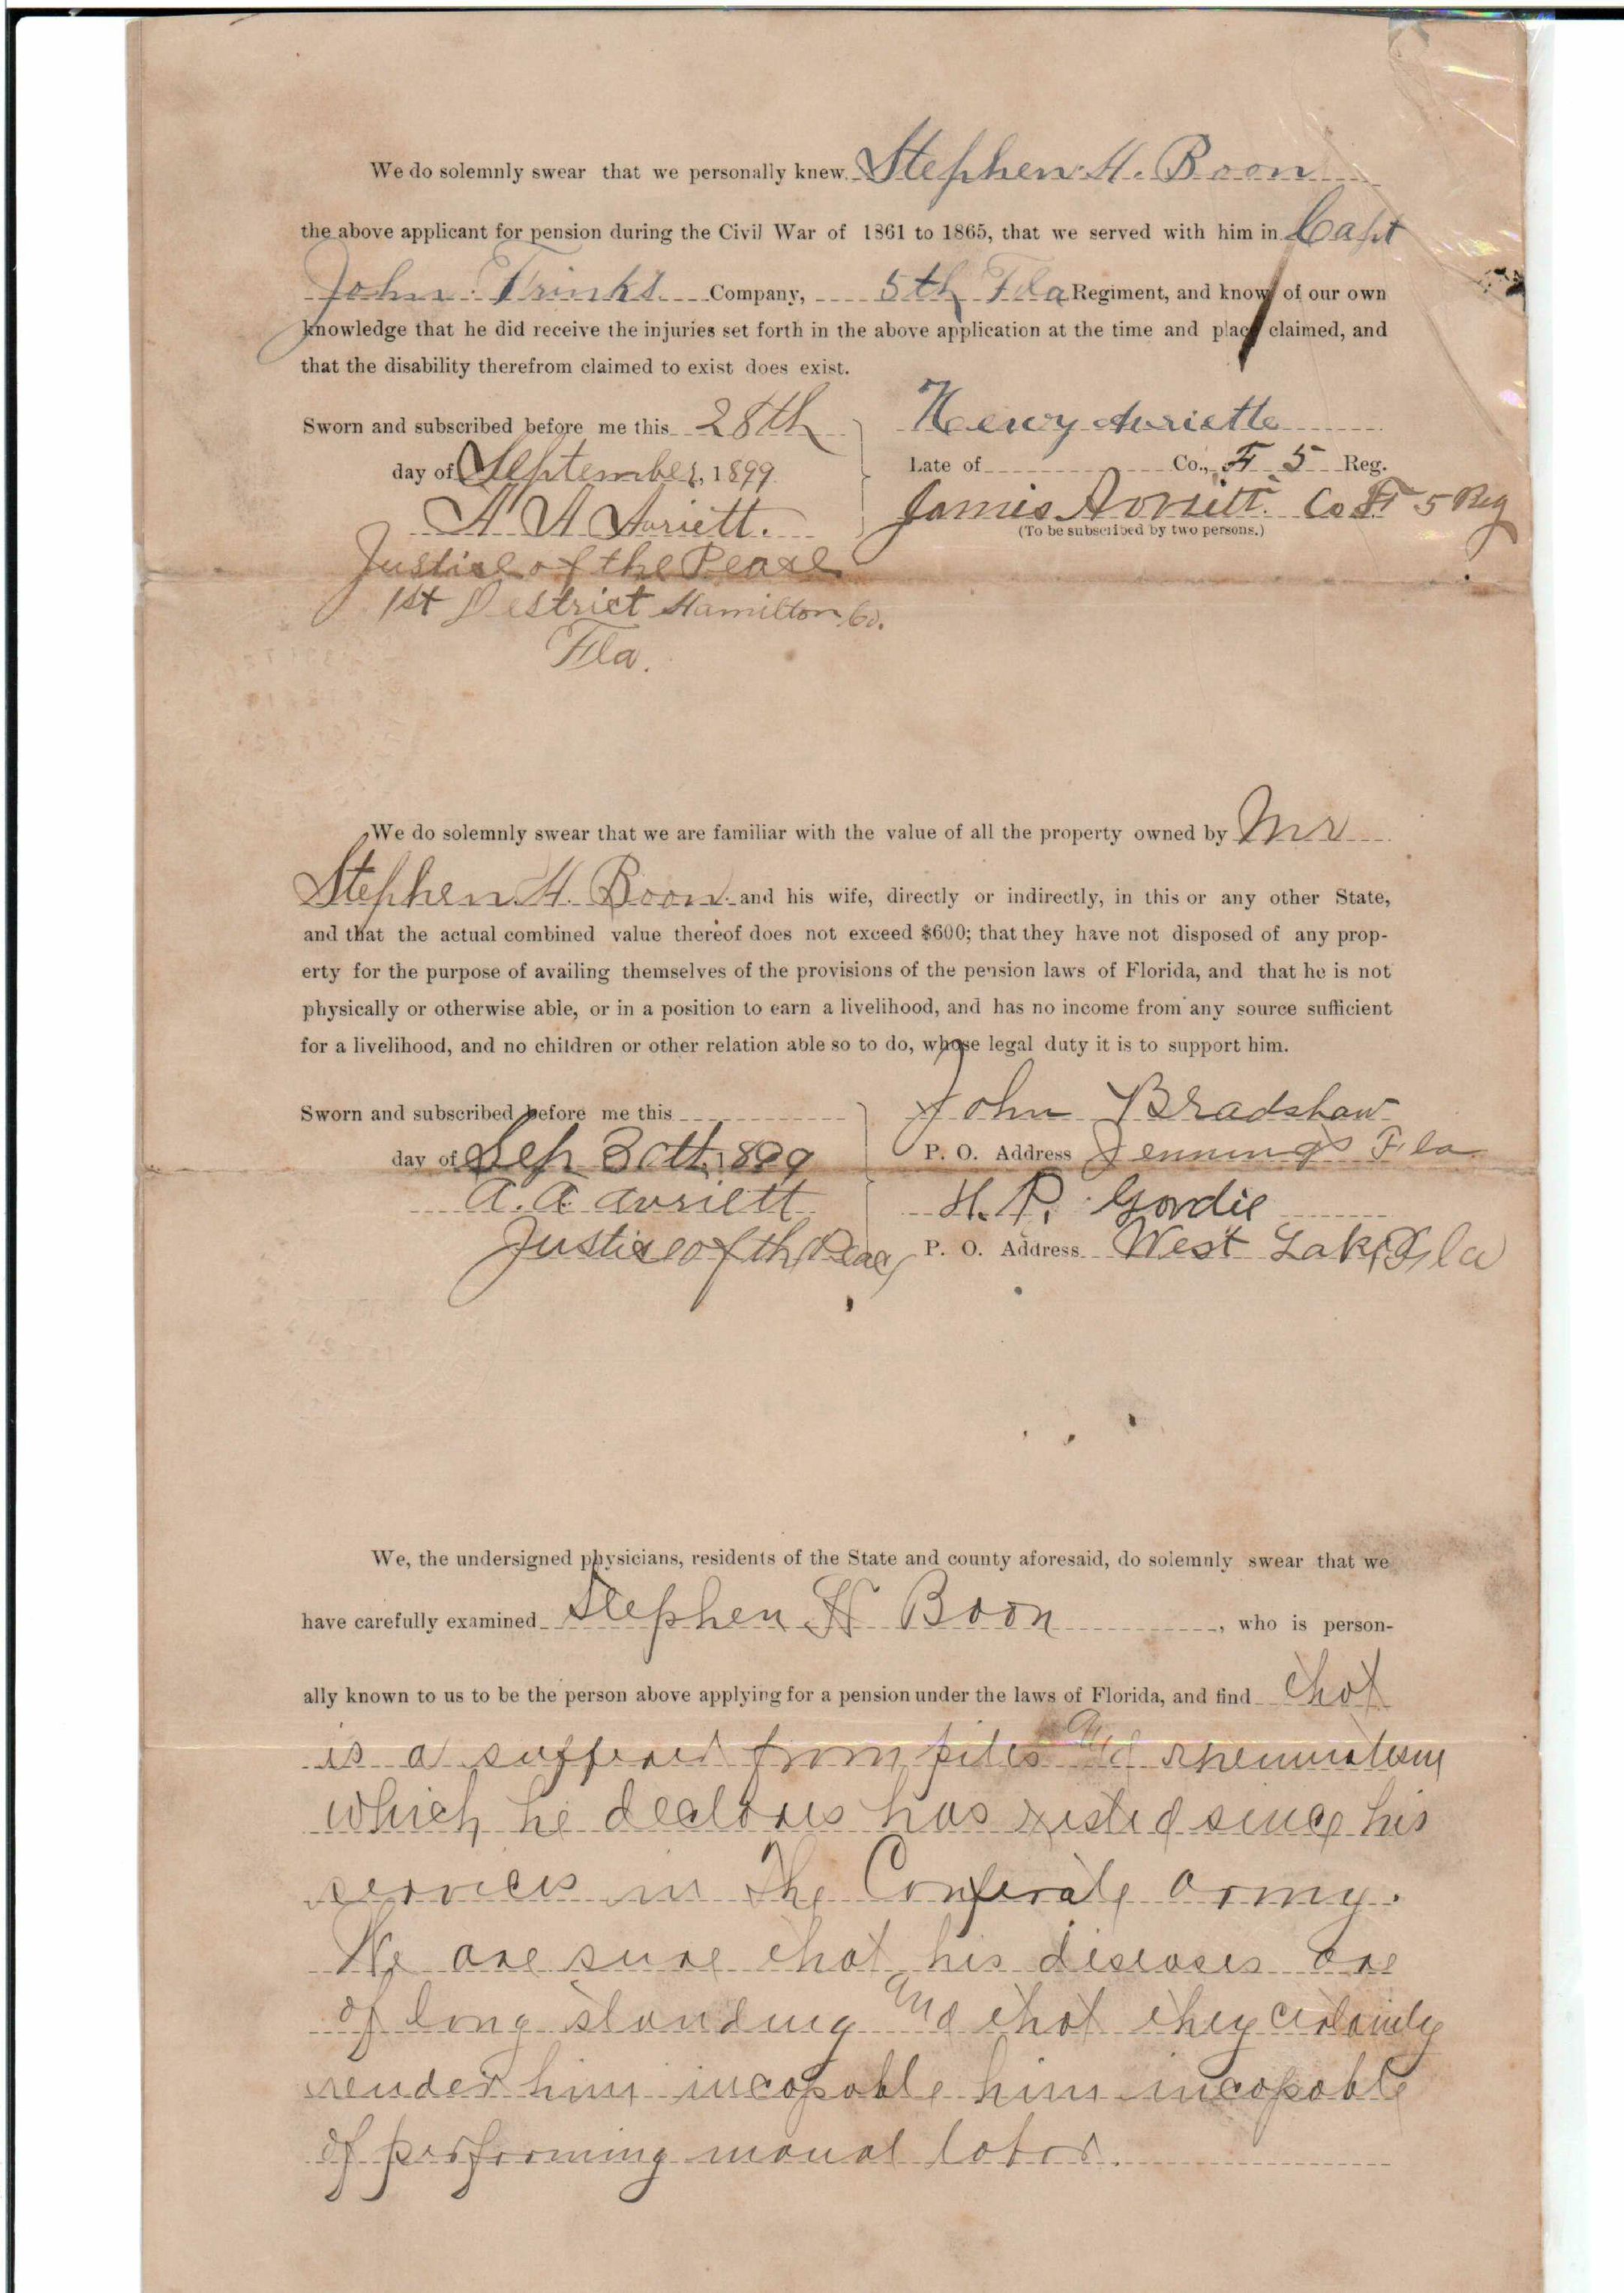 We do solemnly swear that we personally knew Stephen H. Boon
the above applicant for pension during the Civil War of 1861 to 1865, that we served with him in Capt
John Frinks Company, 5th Fla Regiment, and know of our own
knowledge that he did receive the injuries set forth in the above application at the time and place claimed, and
that the disability therefrom claimed to exist does exist.
Sworn and subscribed before me this 28th
day of September, 1899
A A Avriett.
Justice of the Peace
1st District Hamilton Co.
Fla.
Henry Avriette
Late of Co., F 5 Reg.
James Avriett. Co F 5 Reg
(To be subscribed by two persons.)
We do solemnly swear that we are familiar with the value of all the property owned by Mr
Stephen H. Boon and his wife, directly or indirectly, in this or any other State,
and that the actual combined value thereof does not exceed $600; that they have not disposed of any prop-
erty for the purpose of availing themselves of the provisions of the pension laws of Florida, and that he is not
physically or otherwise able, or in a position to earn a livelihood, and has no income from any source sufficient
for a livelihood, and no children or other relation able so to do, whose legal duty it is to support him.
Sworn and subscribed before me this
day of Sep 30th, 1899
A. A. Avriett
Justice of th Peace
John Bradshaw
P. O. Address Jennings Fla
H. P. Gordie
P. O. Address West Lake Fla
We, the undersigned physicians, residents of the State and county aforesaid, do solemnly swear that we
have carefully examined Stephen H Boon, who is person-
ally known to us to be the person above applying for a pension under the laws of Florida, and find that
is a sufferer from piles and rheumatism
which he declares has xisted since his
services in the Conferate army.
We are sure that his diseases are
of long standing and that they certainly
render him incapable him incapable
of performing manual labor.